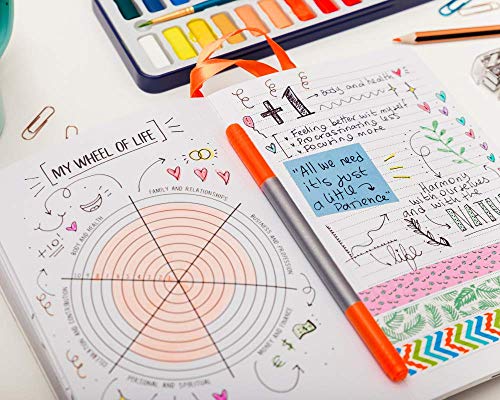 MY WHEEL OF LIFE
FAMILY AND RELATIONSHIPS
BUSINESS AND PROFESSION
MONEY AND FINANCE
PERSONAL AND SPIRITUAL
CELEBRATION AND CONTRIBUTION
BODY AND HEALTH
+10
+1
Body and health
• Feeling better wit myself
• Procrastinating less
• Focuring more
"All we need
it's just
a little
Patience"
Harmony
with ourselves
and with the
life